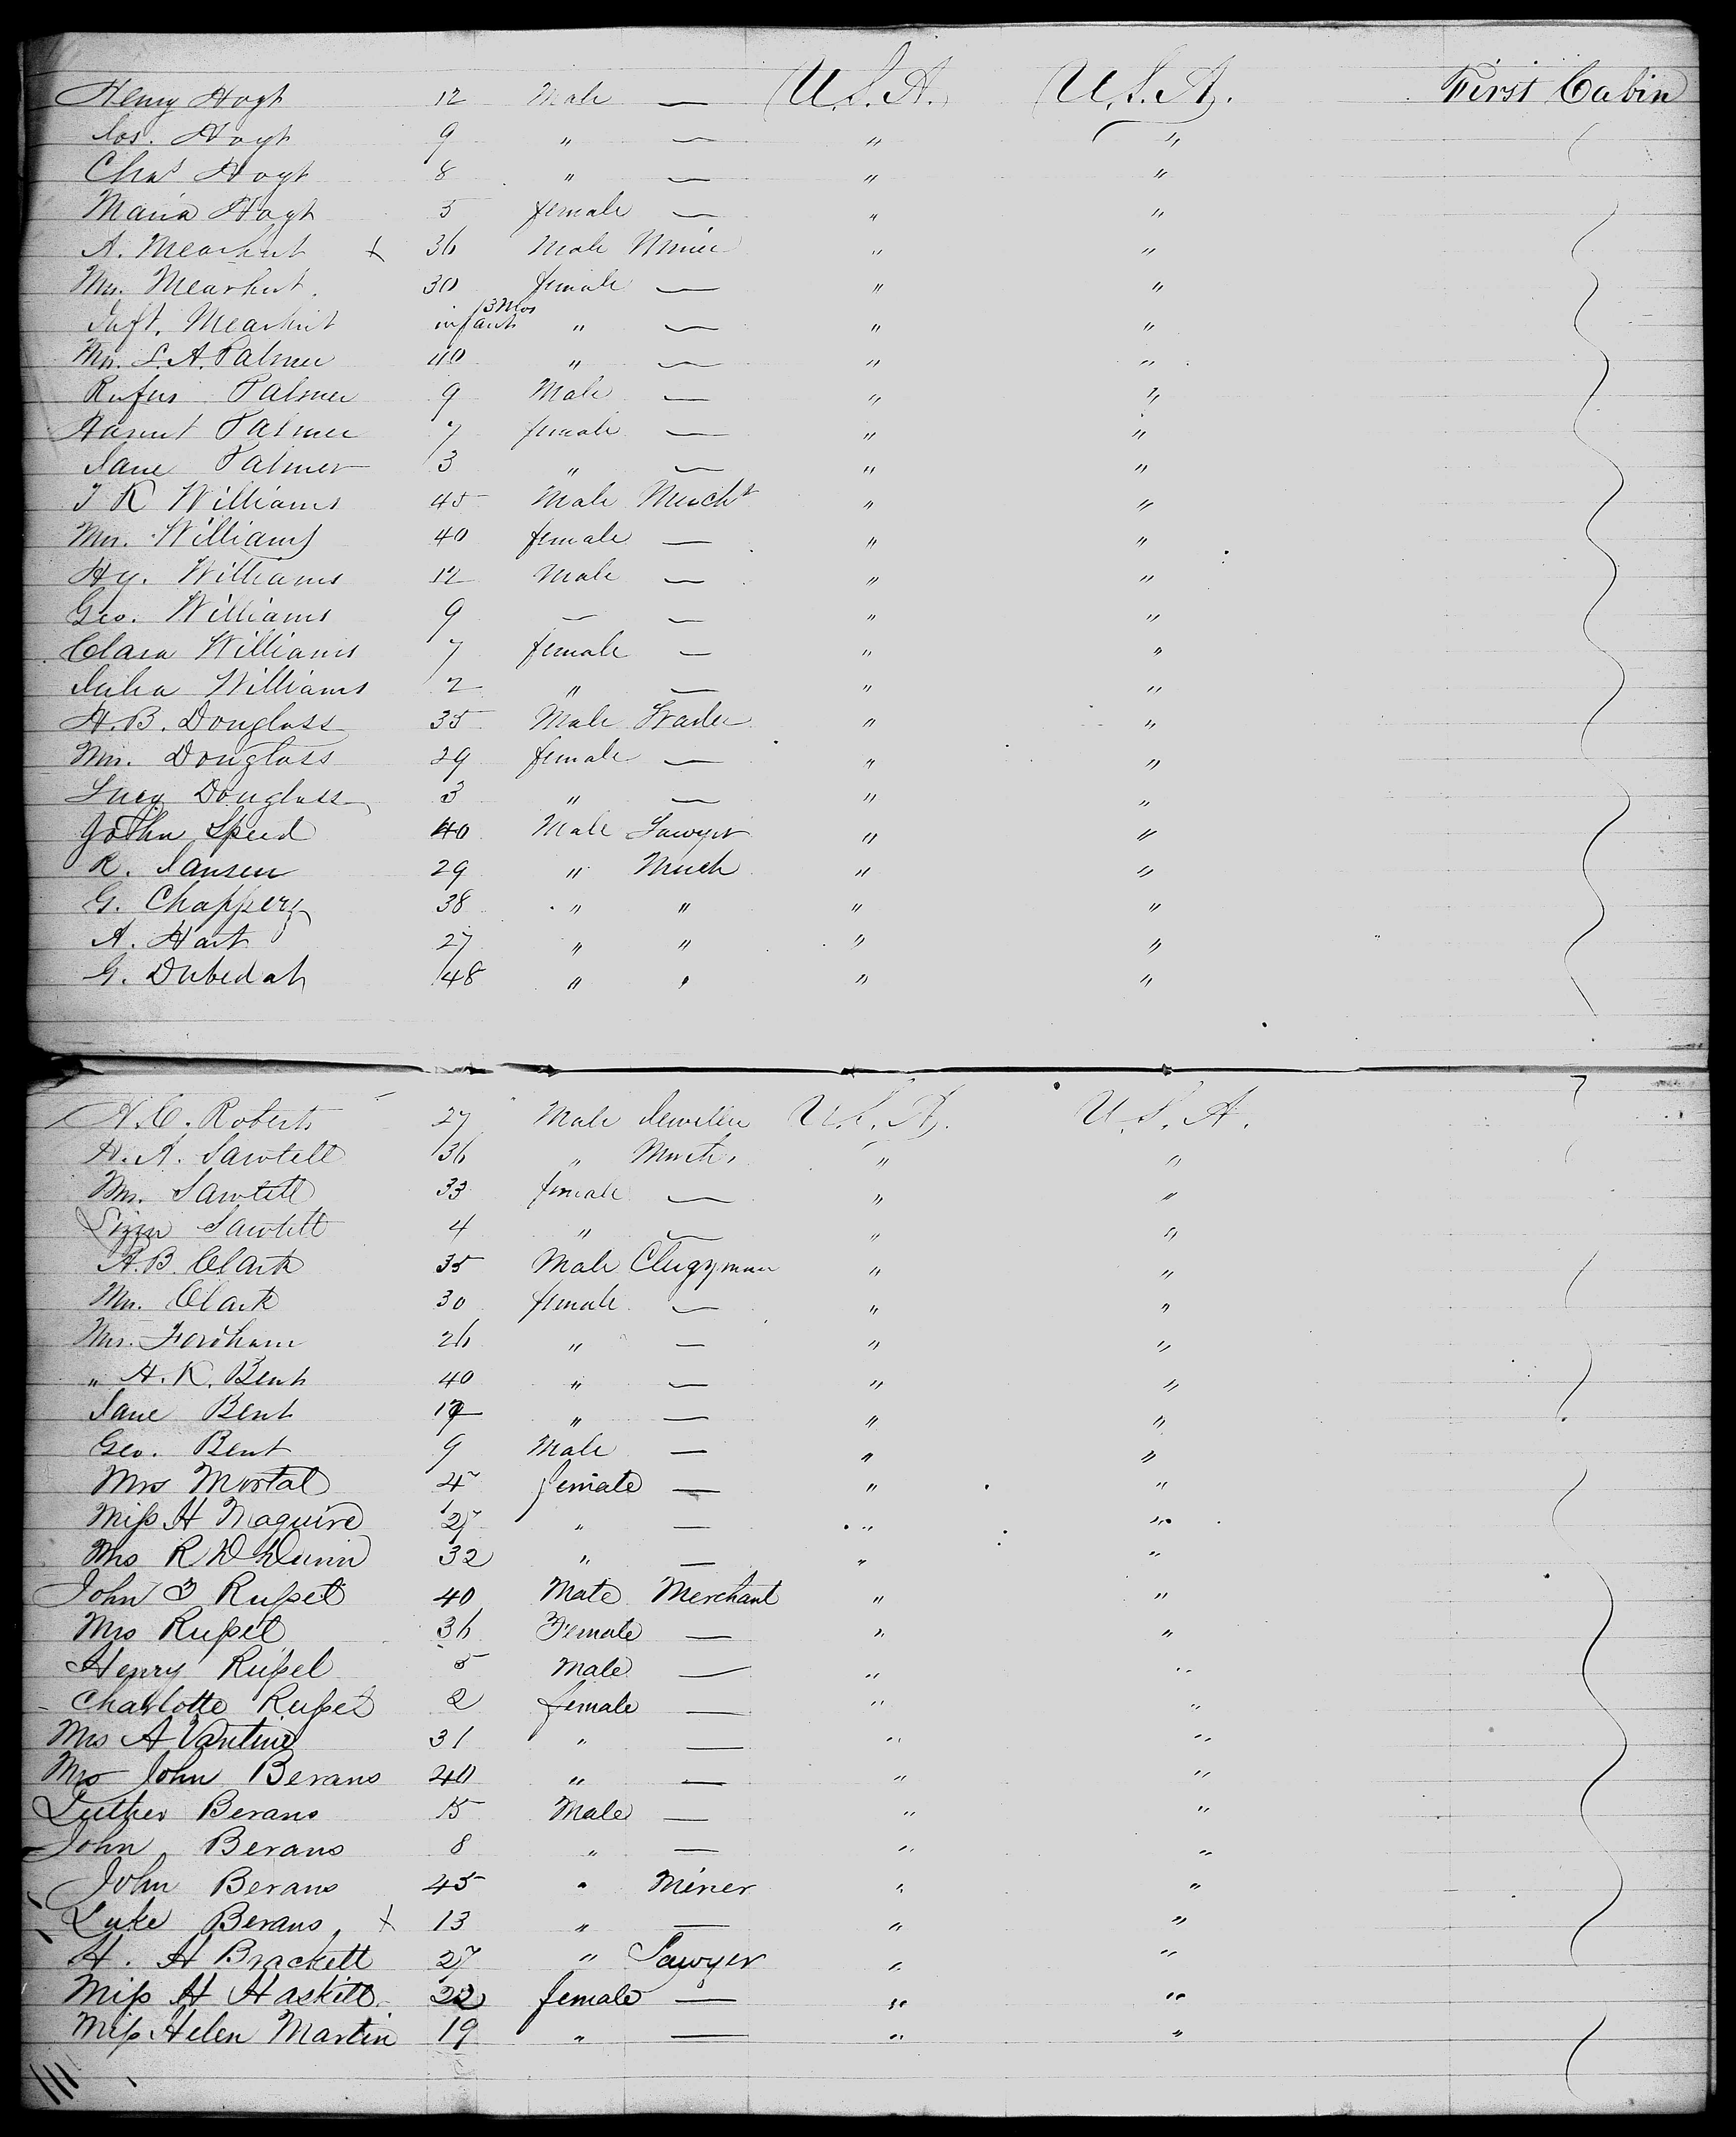 Henry Hoyt 12 Male — U.S.A. U.S.A. First Cabin
Jos. Hoyt 9 " — " "
Chas Hoyt 8 " — " "
Maria Hoyt 5 female — " "
A. Mearhut x 36 Male Miner " "
Mrs. Mearhut. 30 female — " "
Inft. Mearhut infant 3 Mos " — " "
Mrs. S. A. Palmer 40 " — " "
Rufus Palmer 9 Male — " "
Harriet Palmer 7 female — " "
Jane Palmer 3 " — " "
J R Williams 45 Male Mercht " "
Mrs. Williams 40 female — " "
Hy. Williams 12 Male — " "
Geo. Williams 9 — — " "
Clara Williams 7 female — " "
Julia Williams 2 " — " "
H. B. Douglass 35 Male Trader " "
Mrs. Douglass 29 female — " "
Lucy Douglass 3 " — " "
John Speed 40 Male Lawyer " "
R. Jansen 29 " Merch " "
G. Chappery 38 " " " "
A. Hart 27 " " " "
G. Dubedat 48 " " " "
H. C. Roberts 27 Male Jeweller U.S.A. U.S.A.
H. A. Sawtell 36 " Merch. " "
Mrs. Sawtell 33 female — " "
Lizzie Sawtell 4 " — " "
A. B. Clark 35 Male Clergyman " "
Mrs. Clark 30 female — " "
Mrs. Fordham 26 " — " "
" H. K. Bent 40 " — " "
Jane Bent " — " "
Geo. Bent 9 Male — " "
Mrs Mortal female — " "
Miss H Maguire 27 " — " "
Mrs R D Dunn 32 " — " "
John J Russel 40 Male Merchant " "
Mrs Russel 36 Female — " "
Henry Russel 5 Male — " "
Charlotte Russel 2 female — " "
Mrs A Vantine 31 " — " "
Mrs John Bevans 40 " — " "
Luther Bevans 15 Male — " "
John Bevans 8 " — " "
John Bevans 45 " Miner " "
Luke Bevans x 13 " — " "
H. H Brackett 27 " Lawyer " "
Miss H Haskill 22 female — " "
Miss Helen Martin 19 " — " "